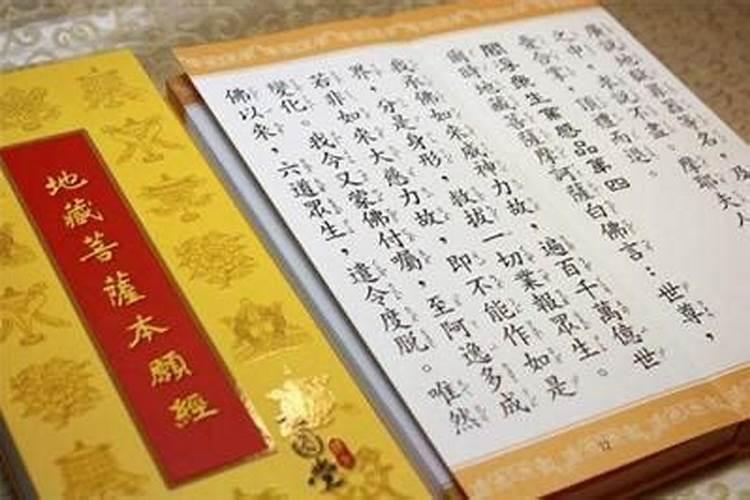 地藏菩薩本願經
廣說地獄罪報等名，及
之中，求說不盡。摩耶夫人
憂合掌，頂禮而退。
閻浮眾生業感品第四
爾時地藏菩薩摩訶薩白佛言：世尊，
我承佛如來威神力故，遍百千萬億世
界，分是身形，救拔一切業報眾生。
若非如來大慈力故，即不能作如是
變化。我今又蒙佛付囑，至阿逸多成
佛以來，六道眾生，遣令度脫。唯然
12